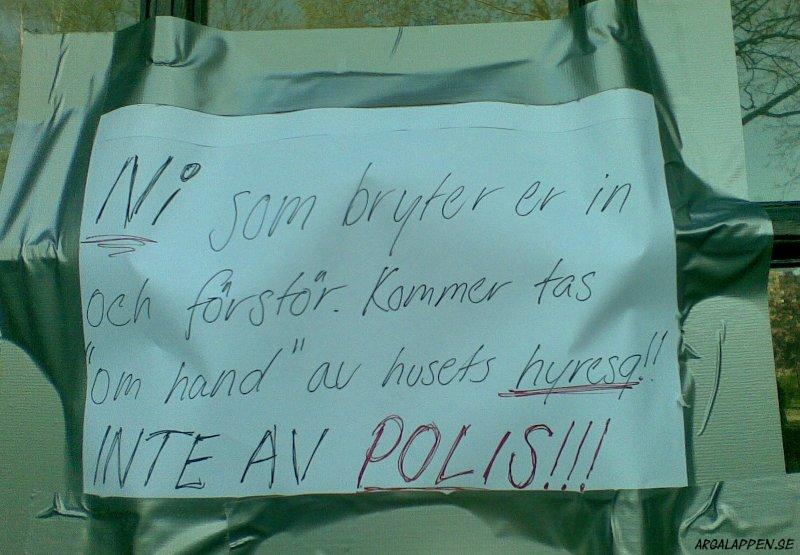 Ni som bryter er in
och förstör. Kommer tas
"om hand" av husets hyresg!!
INTE AV POLIS!!!
ARGALAPPEN.SE